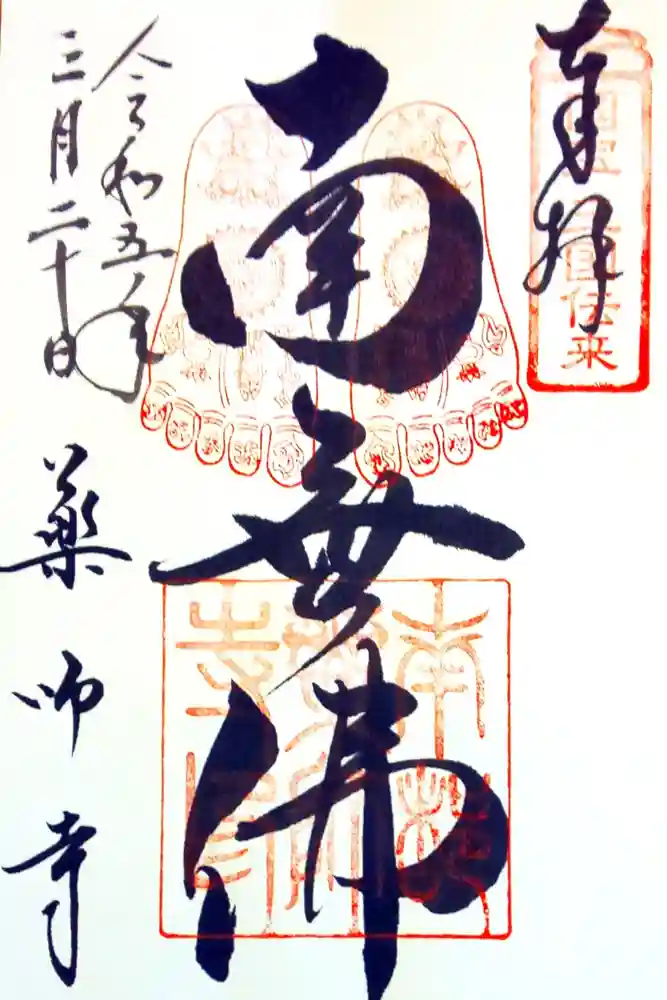 奉拝
国伝来
南無佛
令和五年
三月二十日
薬師寺